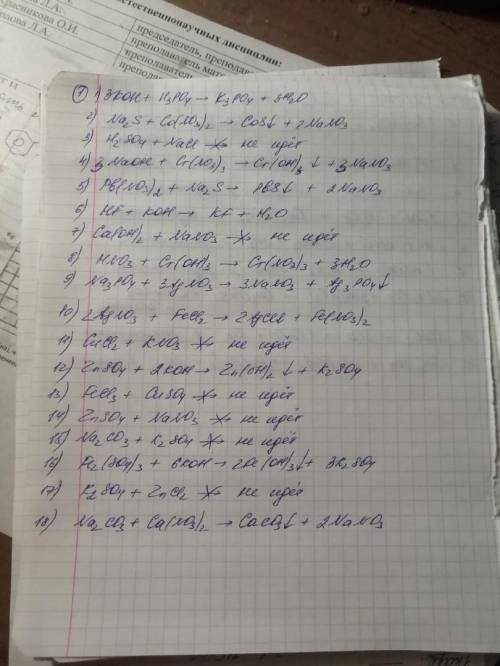 естественнонаучных дисциплин:
Л.А.
красникова О.И.
Л.А.
председатель,
преподаватель мат
преподаватель
① 1) 3KOH + H3PO4 → K3PO4 + 3H2O
2) Na2S + Co(NO3)2 → CoS↓ + 2NaNO3
3) H2SO4 + NaCl -×→ не идёт
4) 3NaOH + Cr(NO3)3 → Cr(OH)3↓ + 3NaNO3
5) Pb(NO3)2 + Na2S → PbS↓ + 2NaNO3
6) HF + KOH → KF + H2O
7) Ca(OH)2 + NaNO3 -×→ не идёт
8) HNO3 + Cr(OH)3 → Cr(NO3)3 + 3H2O
9) Na3PO4 + 3AgNO3 → 3NaNO3 + Ag3PO4↓
10) 2AgNO3 + FeCl2 → 2AgCl + Fe(NO3)2
11) CuCl2 + KNO3 -×→ не идёт
12) ZnSO4 + 2KOH → Zn(OH)2↓ + K2SO4
13) FeCl3 + CuSO4 -×→ не идёт
14) ZnSO4 + NaNO3 -×→ не идёт
15) Na2CO3 + K2SO4 -×→ не идёт
16) Fe2(SO4)3 + 6KOH → 2Fe(OH)3↓ + 3K2SO4
17) K2SO4 + ZnCl2 -×→ не идёт
18) Na2CO3 + Ca(NO3)2 → CaCO3↓ + 2NaNO3